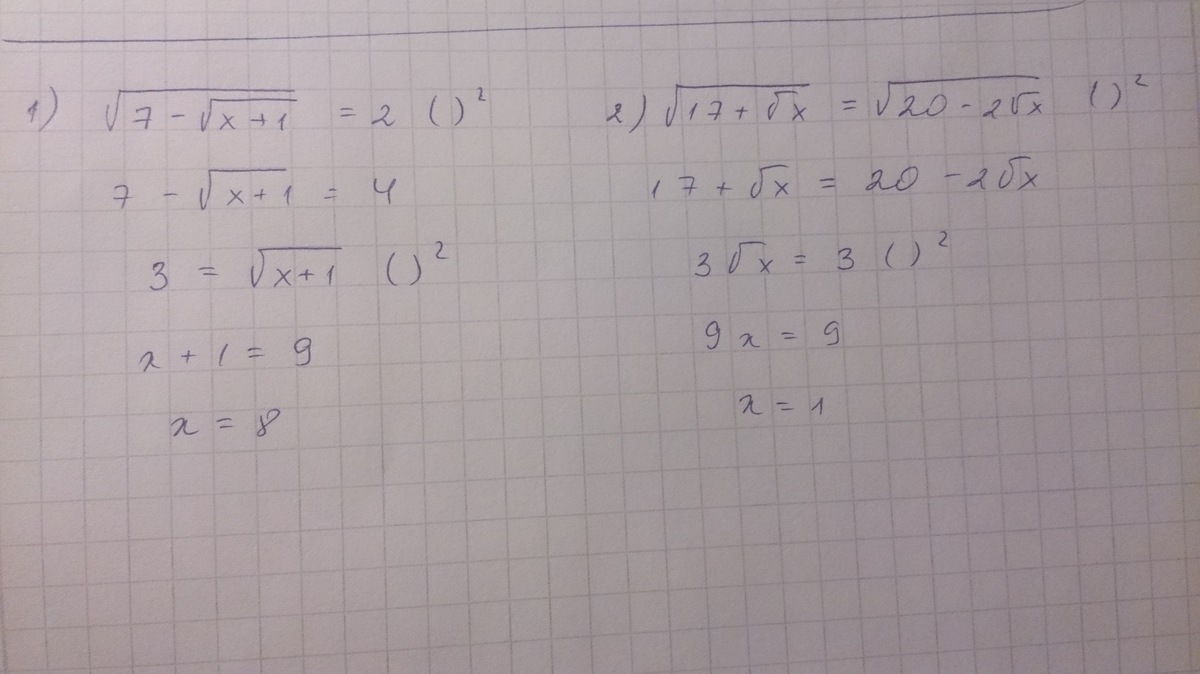 1) √(7 - √(x + 1)) = 2 ( )²
7 - √(x + 1) = 4
3 = √(x + 1) ( )²
x + 1 = 9
x = 8
2) √(17 + √x) = √(20 - 2√x) ( )²
17 + √x = 20 - 2√x
3√x = 3 ( )²
9x = 9
x = 1